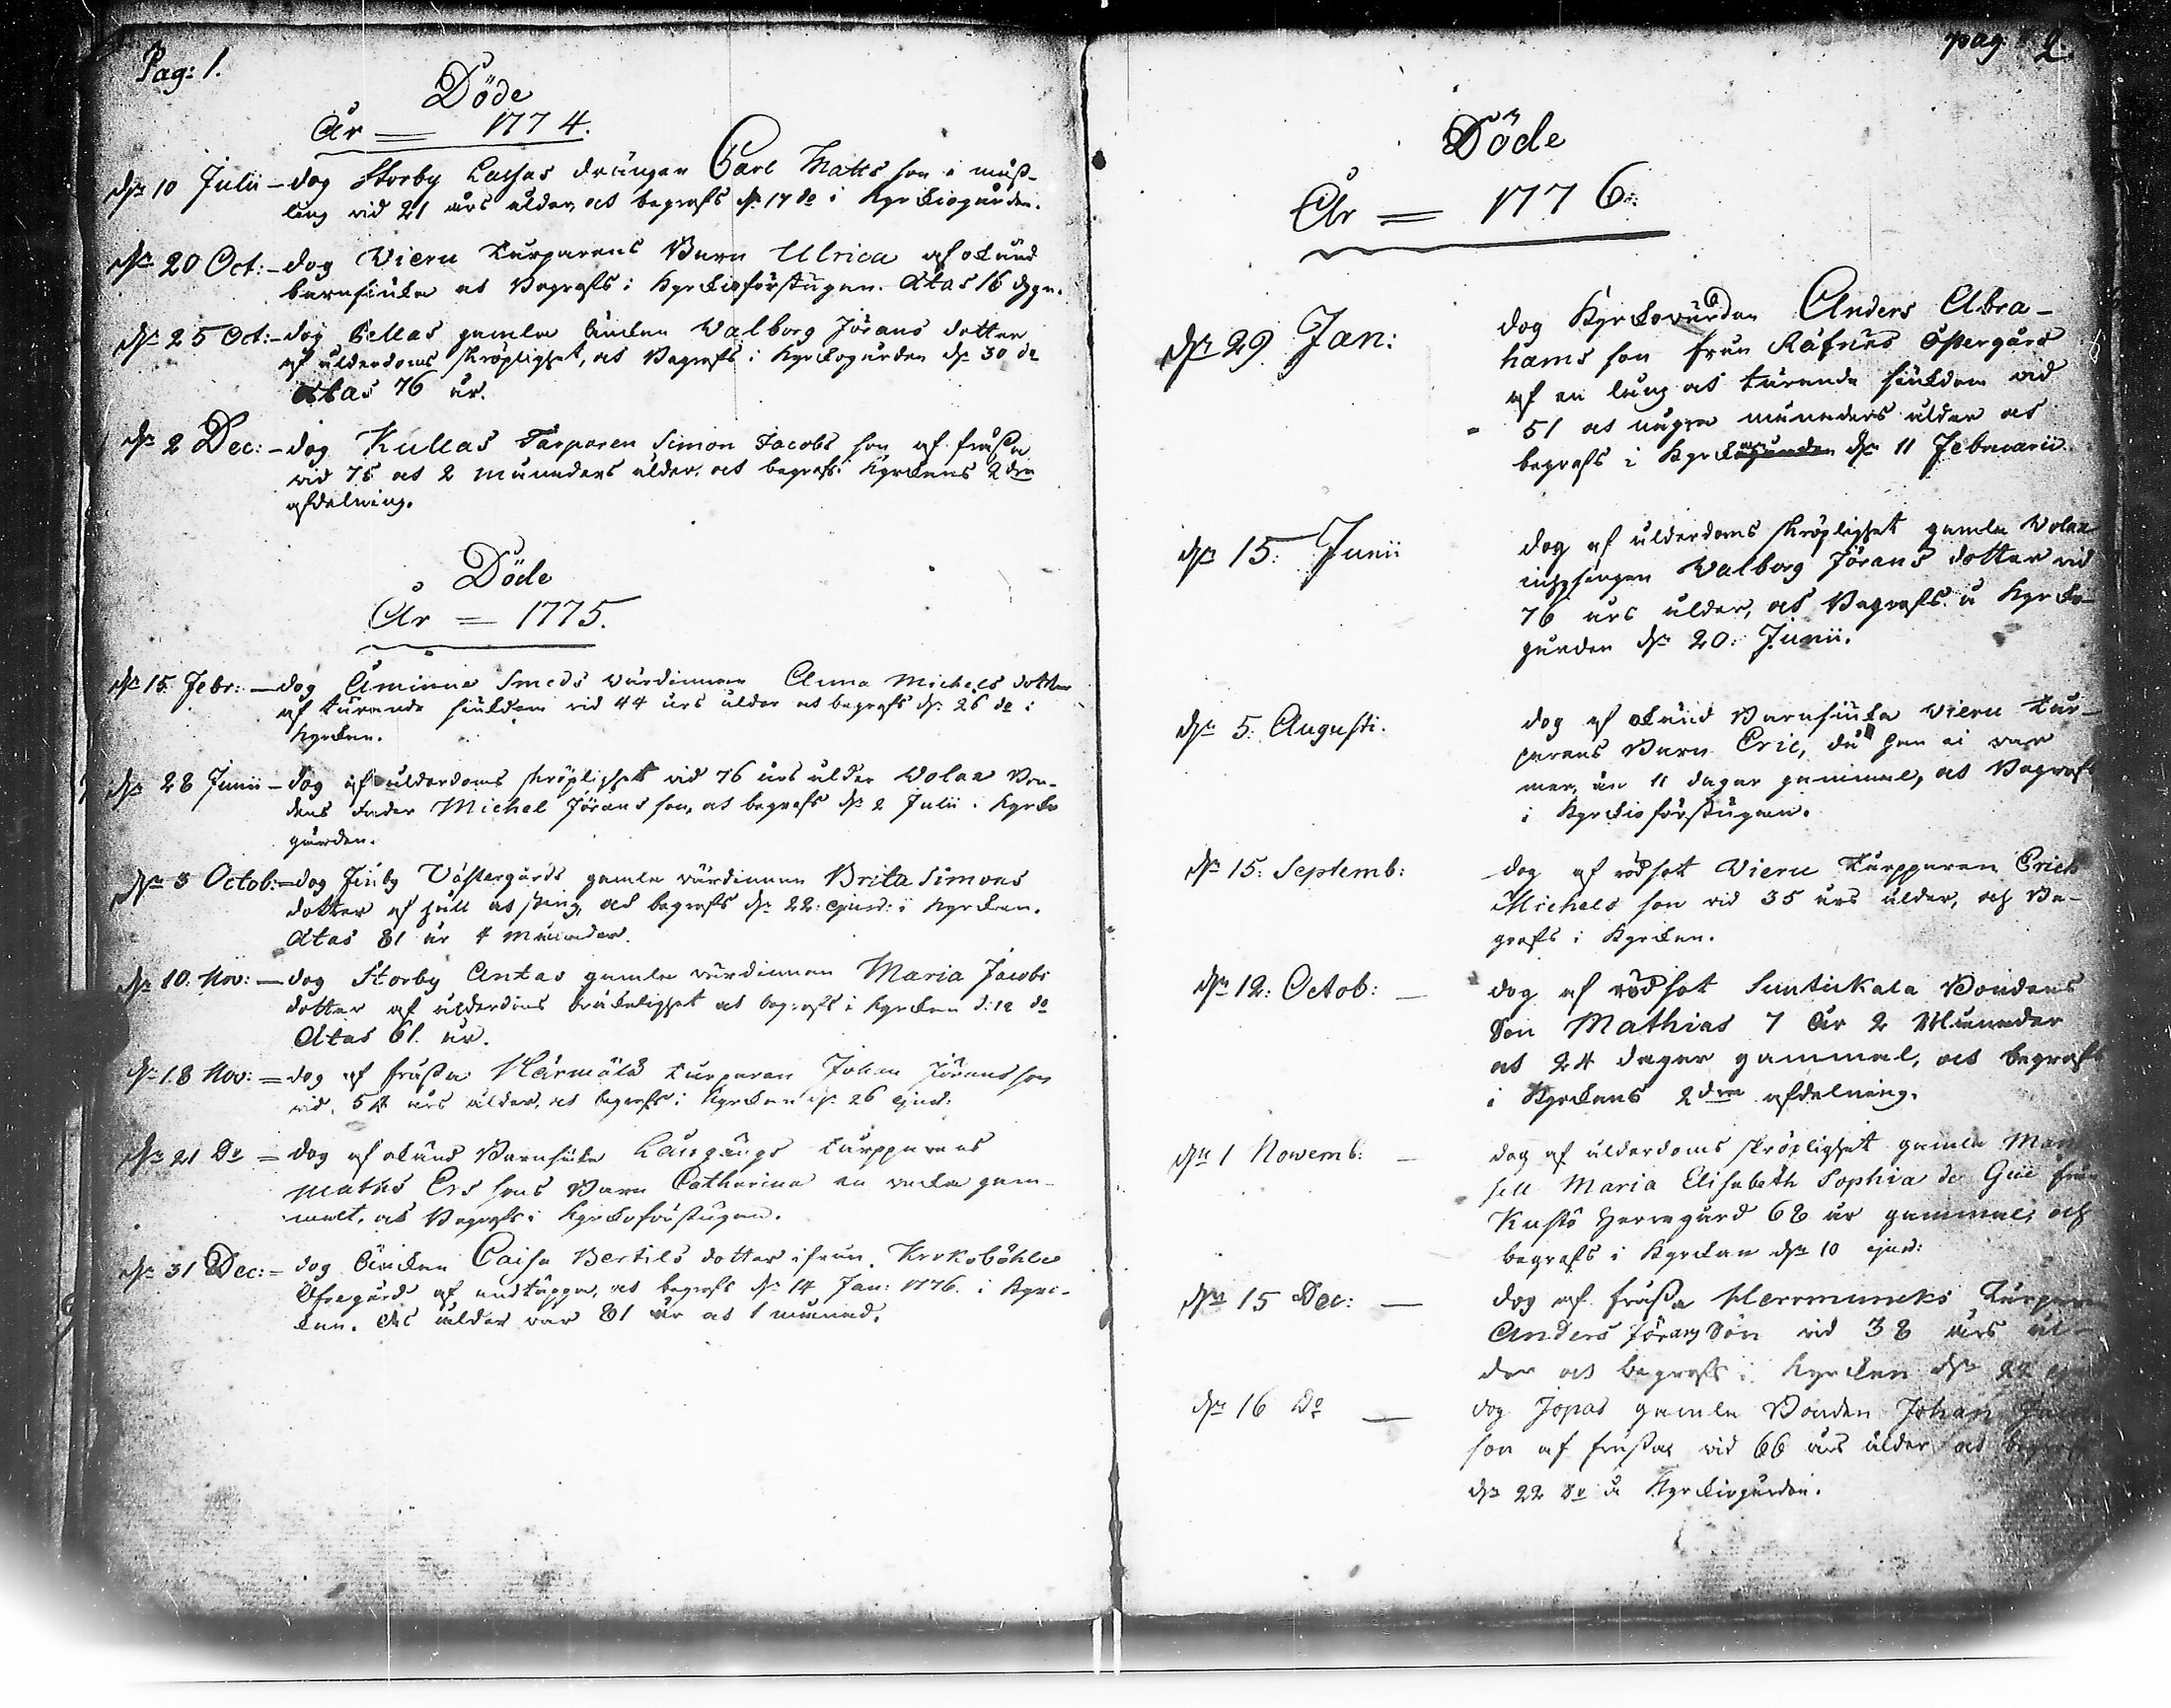 Pag: 1.
Döde
År = 1774.
dn 10 Julii - dog Storby Lassas drängen Carl Matts son i mäß-
ling vid 21 års ålder, och begrofs dn 17 do i Kyrkiogården.
dn 20 Oct: - dog Vieru Turparens Barn Ulrica af okänd
barnsiuka och Begrofs i Kyrkioförstugan. Ætas 16 dygn.
dn 25 Oct: - dog Bellas gamla Änkan Walborg Jörans dotter
af ålderdoms skröplighet, och Begrofs i Kyrkogården dn 30 do
Ætas 76 år.
dn 2 Dec: - dog Kullas Tårparen Simon Jacobs son af fråßa
vid 75 och 2 Månaders ålder, och begrofs i Kyrkans 2dra
afdelning.
Döde
År = 1775.
dn 15 Febr: - dog Åminne Smeds värdinnan Anna Michels dotter
af tärande siukdom vid 44 års ålder och begrofs dn 26 do i
Kyrkan.
dn 28 Junii - dog af ålderdoms skröplighet vid 76 års ålder Wolax Bon-
dens Fader Michel Jörans son, och begrofs dn 2 Julii i Kyrko
gården.
dn 3 Octob: - dog Finby Västergårds gamla värdinnan Brita Simons
dotter af håll och sting, och begrofs dn 22: ejusd: i Kyrkan.
Ætas 81 år 4 Månader.
dn 10: Nov: - dog Storby Antas gamla värdinnan Maria Jacobs
dotter af ålderdoms bräckelighet och begrofs i Kyrkan d: 12 do
Ætas 61. år.
dn 18 Nov: = dog af fråßa Härmälä turparen Johan Jöransson
vid 54 års ålder, och begrofs i Kyrkan dn 26 ejusd:
dn 21 Do = dog af okänd Barnsiuka Laugängs Turpparens
Maths Ers sons Barn Catharina en vecka gam-
malt, och Begrofs i Kyrkoförstugan.
dn 31 Dec: = dog Änkan Caisa Bertils dotter ifrån Kroksböhle
Öfregård af andtäppa, och begrofs dn 14 Jan: 1776. i Kyrc-
kan. Des ålder var 81 år och 1 månad.
pag: 2
Döde
År = 1776:
dn 29 Jan: dog Kyrkovärden Anders Abra-
hams son från Räfnäs Östergård
af en lång och tärande siukdom vid
51 och några månaders ålder och
begrofs i Kyrkan dn 11 Februarii.
dn 15: Junii dog af ålderdoms skröplighet gamla Wolax
inhysingen Walborg Jörans dotter vid
76 års ålder, och Begrofs å Kyrko-
gården dn 20: Junii.
dn 5: Augusti. dog af okänd Barnsiuka Vieru tur-
parens Barn Eric, då han ei var
mer, än 11 dagar gammal, och Begrofs
i Kyrkioförstugan.
dn 15: Septemb: dog af rödsot Vieru Turpparen Erich
Michels son vid 35 års ålder, och Be-
grofs i Kyrkan.
dn 12: Octob: — dog af rödsot Suntickala Bondens
Son Mathias 7 År 2 Månader
och 24 dagar gammal, och begrofs
i Kyrkans 2dra afdelning.
dn 1 Novemb: — dog af ålderdoms skröplighet gamla Mam
sell Maria Elisabeth Sophia de Güe från
Kustö Herregård 68 år gammal, och
begrofs i Kyrkan dn 10 ejusd:
dn 15 Dec: — dog af fråßa Herrmuncks Turparen
Anders Jörans Son vid 38 års ål-
der och begrofs i Kyrkan dn 22
dn 16 Do — dog Jopas gamla Bonden Johan
son af fråßa, vid 66 års ålder och begrofs
dn 22 do å Kyrkiogården.